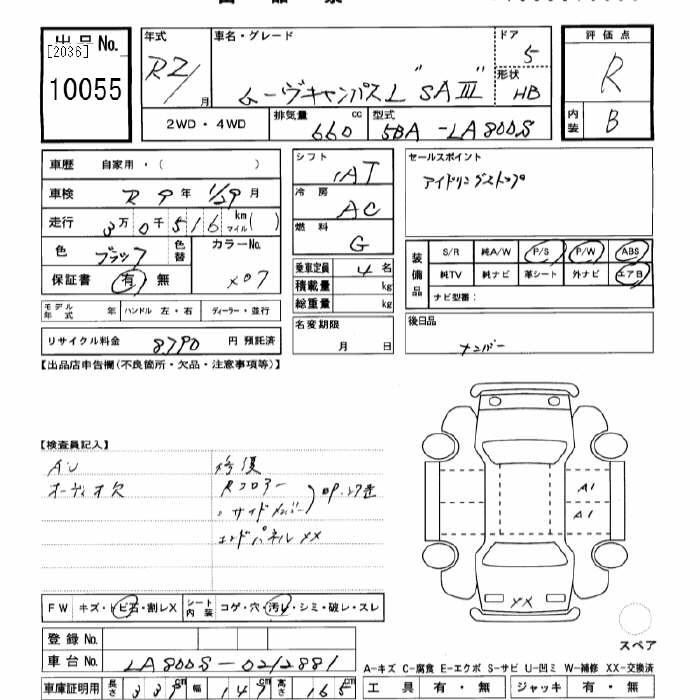 出品No.
[2036]
10055
年式
R2/
月
車名・グレード
ムーヴキャンバスL "SAⅢ"
ドア
5
形状
HB
2WD・4WD
排気量
660
cc
型式
5BA-LA800S
評価点
R
内装
B
車歴
自家用・(
)
車検
R 9年 1/29月
走行
3万0千516
km
マイル
(
)
色
ブラック
色替
カラーNo.
X07
保証書
有
無
モデル年式
年
ハンドル
左・右
ディーラー・並行
リサイクル料金
8790
円 預託済
シフト
AT
冷房
AC
燃料
G
乗車定員
4名
積載量
kg
総重量
kg
名変期限
月
日
セールスポイント
アイドリングストップ
装備品
S/R
純A/W
P/S
P/W
ABS
純TV
純ナビ
革シート
外ナビ
エアB
ナビ型番:
後日品
ナンバー
【出品店申告欄(不良箇所・欠品・注意事項等)】
【検査員記入】
AU
オーディオ欠
修復
Rフロアー
サイドメンバー
エンドパネルXX
A1
A1
XX
スペア
FW
キズ・トビ石・割レX
シート内装
コゲ・穴・汚レ・シミ・破レ・スレ
登録No.
車台No.
LA800S-0212881
A-キズ C-腐食 E-エクボ S-サビ U-凹ミ W-補修 XX-交換済
車庫証明用
長さ
339
cm
幅
147
cm
高さ
165
cm
工具
有・無
ジャッキ
有・無